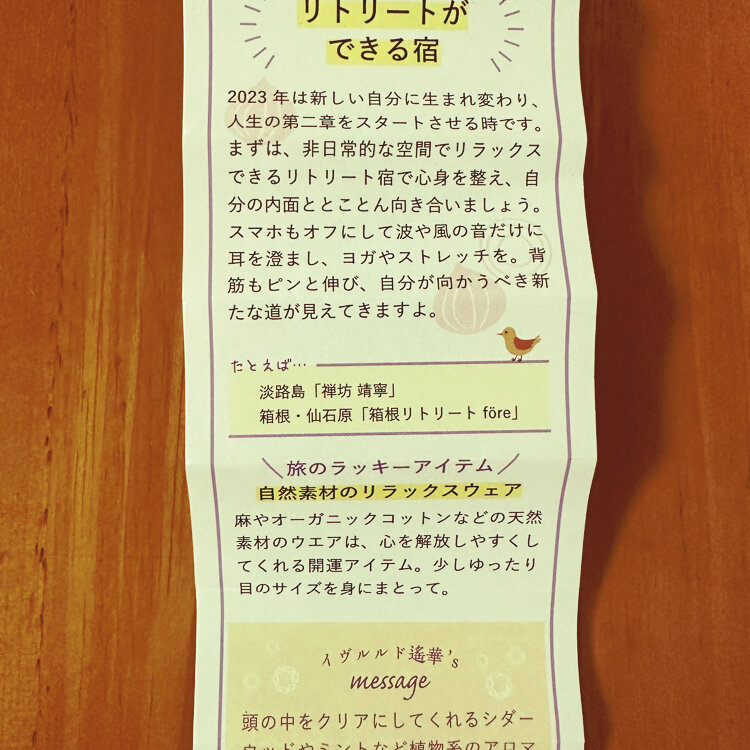 リトリートが
できる宿
2023年は新しい自分に生まれ変わり、
人生の第二章をスタートさせる時です。
まずは、非日常的な空間でリラックス
できるリトリート宿で心身を整え、自
分の内面ととことん向き合いましょう。
スマホもオフにして波や風の音だけに
耳を澄まし、ヨガやストレッチを。背
筋もピンと伸び、自分が向かうべき新
たな道が見えてきますよ。
たとえば…
淡路島「禅坊 靖寧」
箱根・仙石原「箱根リトリート före」
旅のラッキーアイテム
自然素材のリラックスウェア
麻やオーガニックコットンなどの天然
素材のウエアは、心を解放しやすくし
てくれる開運アイテム。少しゆったり
目のサイズを身にまとって。
イヴルルド遙華's
message
頭の中をクリアにしてくれるシダー
ウッドやミントなど植物系のアロマ